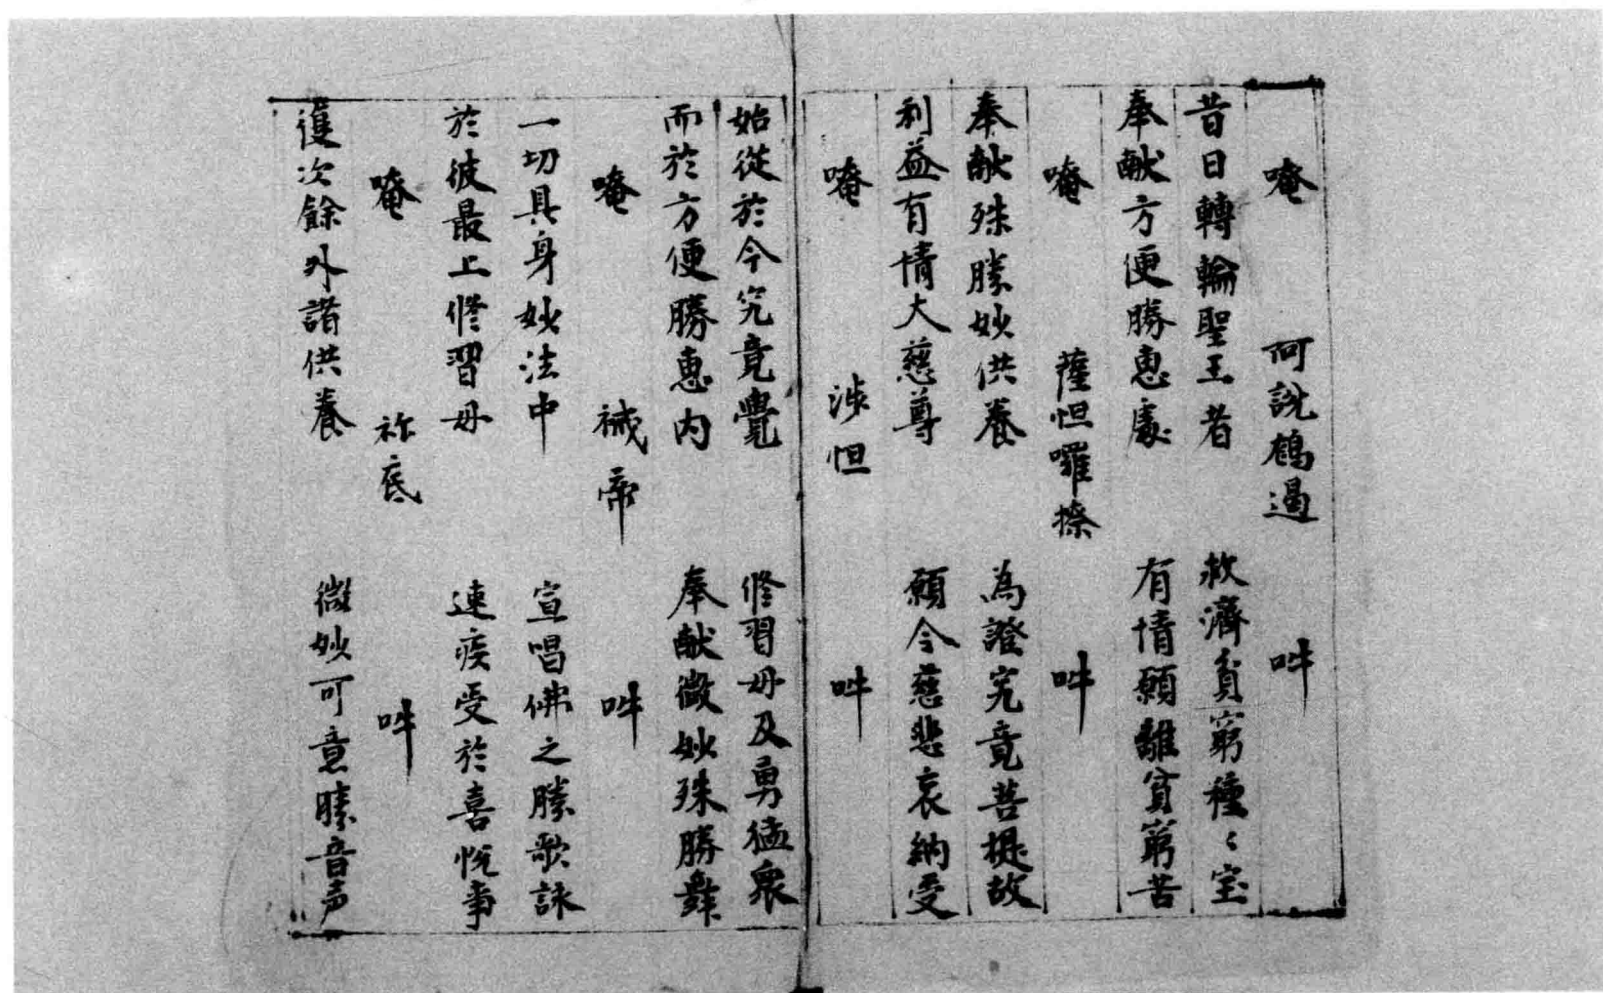 唵 阿説鵮遏 吽
昔日轉輪聖王者 救濟貧窮種〻宝
奉献方便勝惠處 有情願離貧窮苦
唵 薩怛囉捺 吽
奉献殊勝妙供養 為證究竟菩提故
利益有情大慈尊 願令慈悲哀納受
唵 涉怛 吽
始從於今究竟覺 修習母及勇猛衆
而於方便勝惠内 奉献微妙殊勝舞
唵 帝 吽
一切具身妙法中 宣唱佛之勝歌詠
於彼最上修習母 速疾受於喜悅事
唵 祢底 吽
復次餘外諸供養 微妙可意勝音声